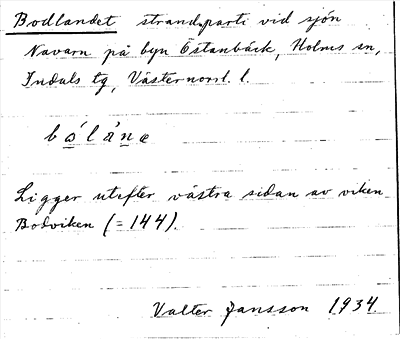 Bodlandet strandparti vid sjön
Navarn på byn Östanbäck, Holms sn,
Indals tg, Västernorrl. l.
bo̲´lá̲n̲e
Ligger utefter västra sidan av viken
Bodviken (=144).
Valter Jansson 1934.